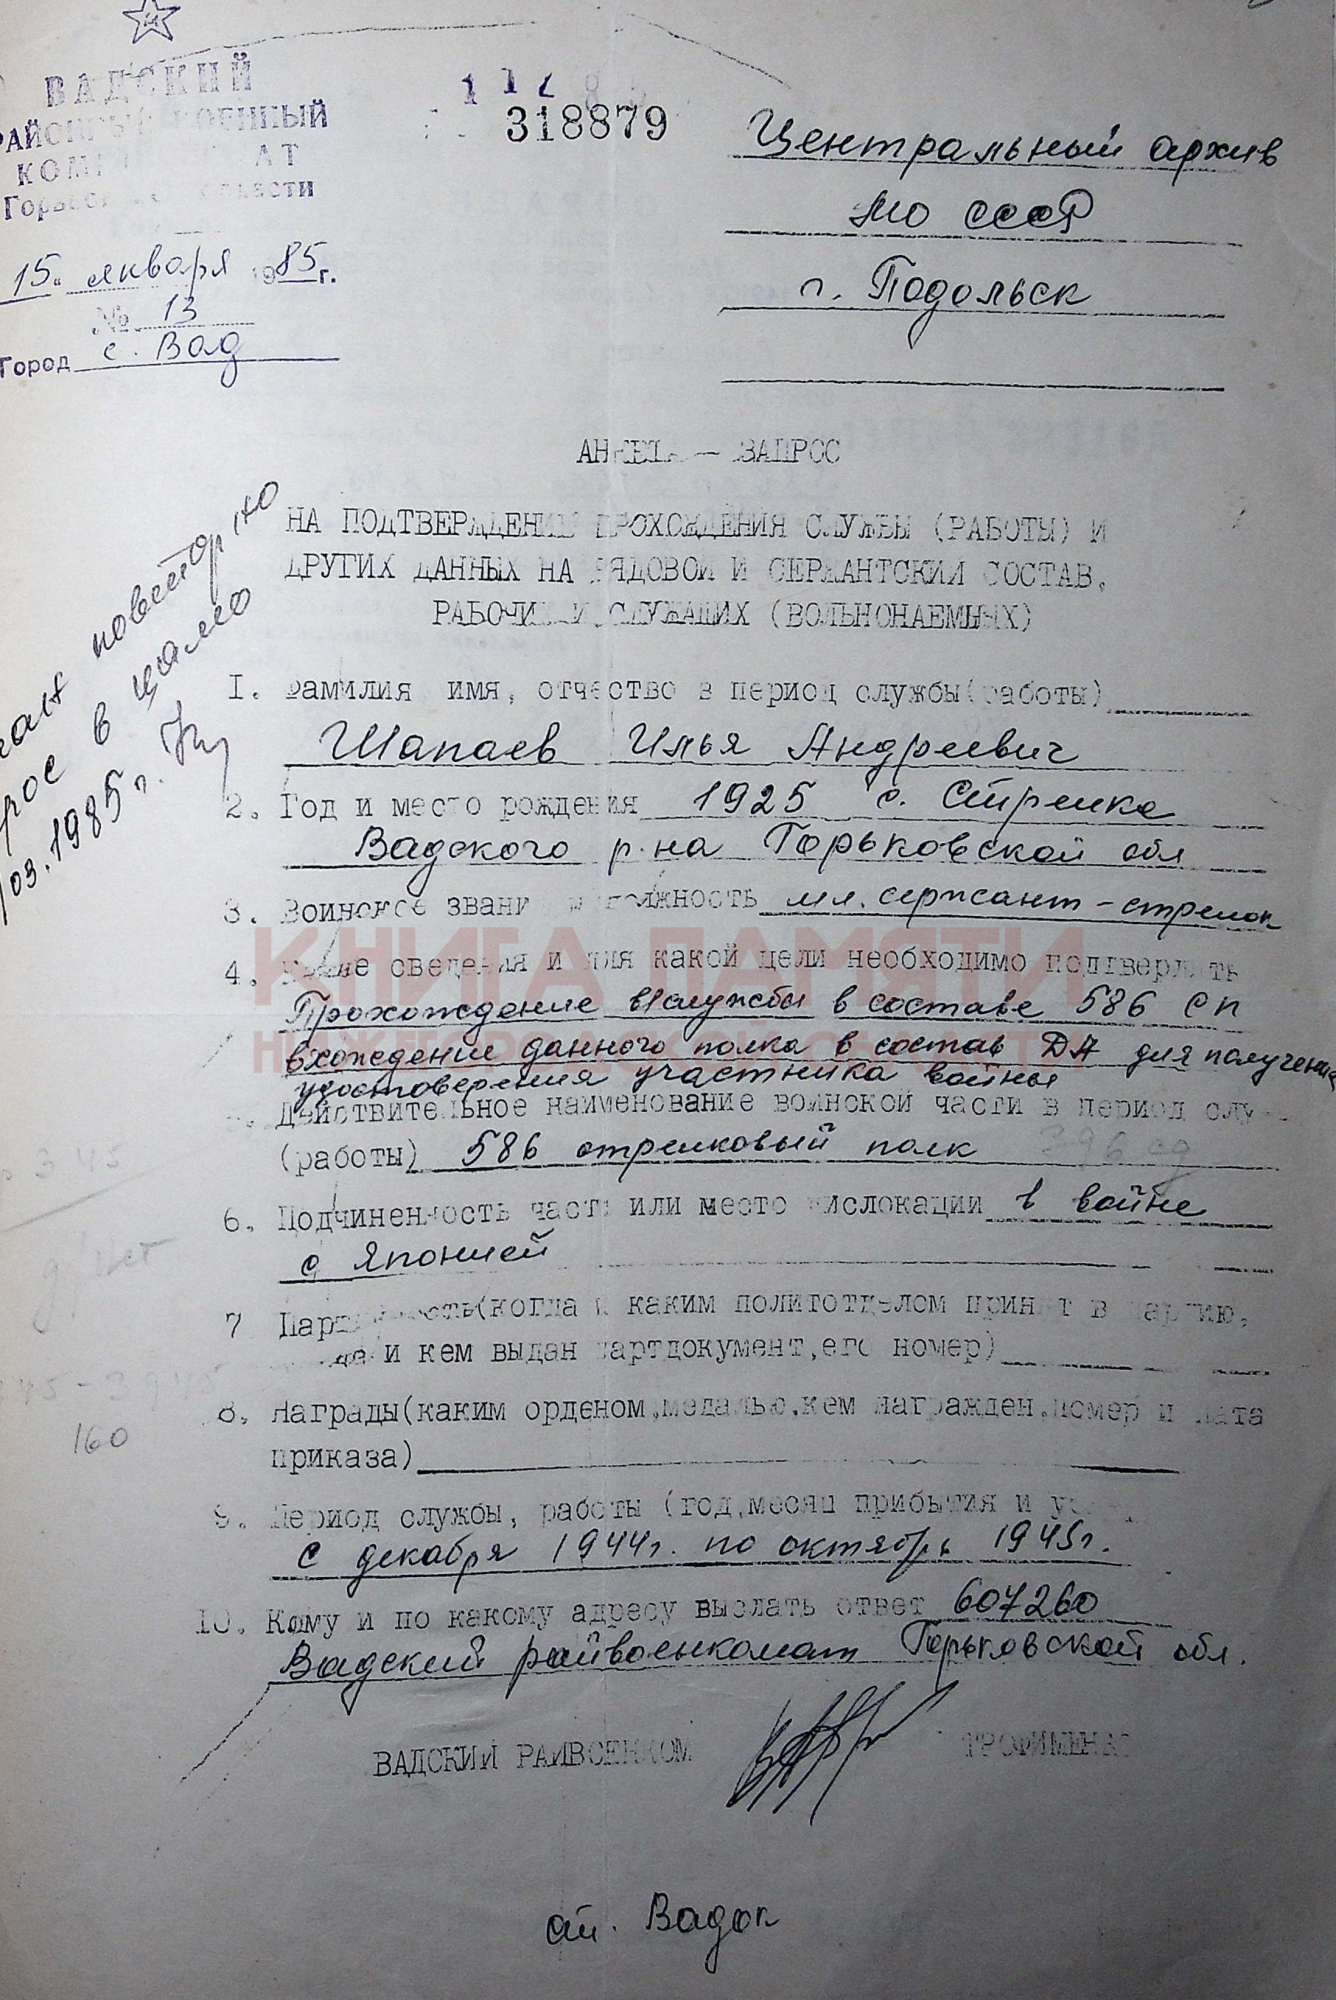 ВАДСКИЙ
РАЙОННЫЙ ВОЕННЫЙ
КОМИССАРИАТ
Горьковской области
15. января 1985 г.
№ 13
Город с. Вад
318879
Центральный архив
МО СССР
г. Подольск
АНКЕТА — ЗАПРОС
НА ПОДТВЕРЖДЕНИЕ ПРОХОЖДЕНИЯ СЛУЖБЫ (РАБОТЫ) И
ДРУГИХ ДАННЫХ НА РЯДОВОЙ И СЕРЖАНТСКИЙ СОСТАВ,
РАБОЧИХ И СЛУЖАЩИХ (ВОЛЬНОНАЕМНЫХ)
повторно
в цамо
03.1985 г.
1. Фамилия имя, отчество в период службы(работы)
Шапаев Илья Андреевич
2. Год и место рождения 1925 с. Стрелка
Вадского р-на Горьковской обл
3. Воинское звание и должность мл. сержант - стрелок
4. Какие сведения и для какой цели необходимо подтвердить
Прохождение в/службы в составе 586 сп
вхождении данного полка в состав ДА для получения
удостоверения участника войны
5. Действительное наименование воинской части в период служ
(работы) 586 стрелковый полк 396 сд
6. Подчиненность части или место дислокации в войне
с Японией
7 Партийность(когда и каким политотделом принят в партию,
когда и кем выдан партдокумент,его номер)
8. Награды(каким орденом,медалью,кем награжден,номер и дата
приказа)
160
9. Период службы, работы (год,месяц прибытия и
с декабря 1944г. по октябрь 1945г.
10. Кому и по какому адресу выслать ответ 607260
Вадский райвоенкомат Горьковской обл.
ВАДСКИЙ РАЙВОЕНКОМ
ст. Вадок
КНИГА ПАМЯТИ
НИЖЕГОРОДСКОЙ ОБЛАСТИ